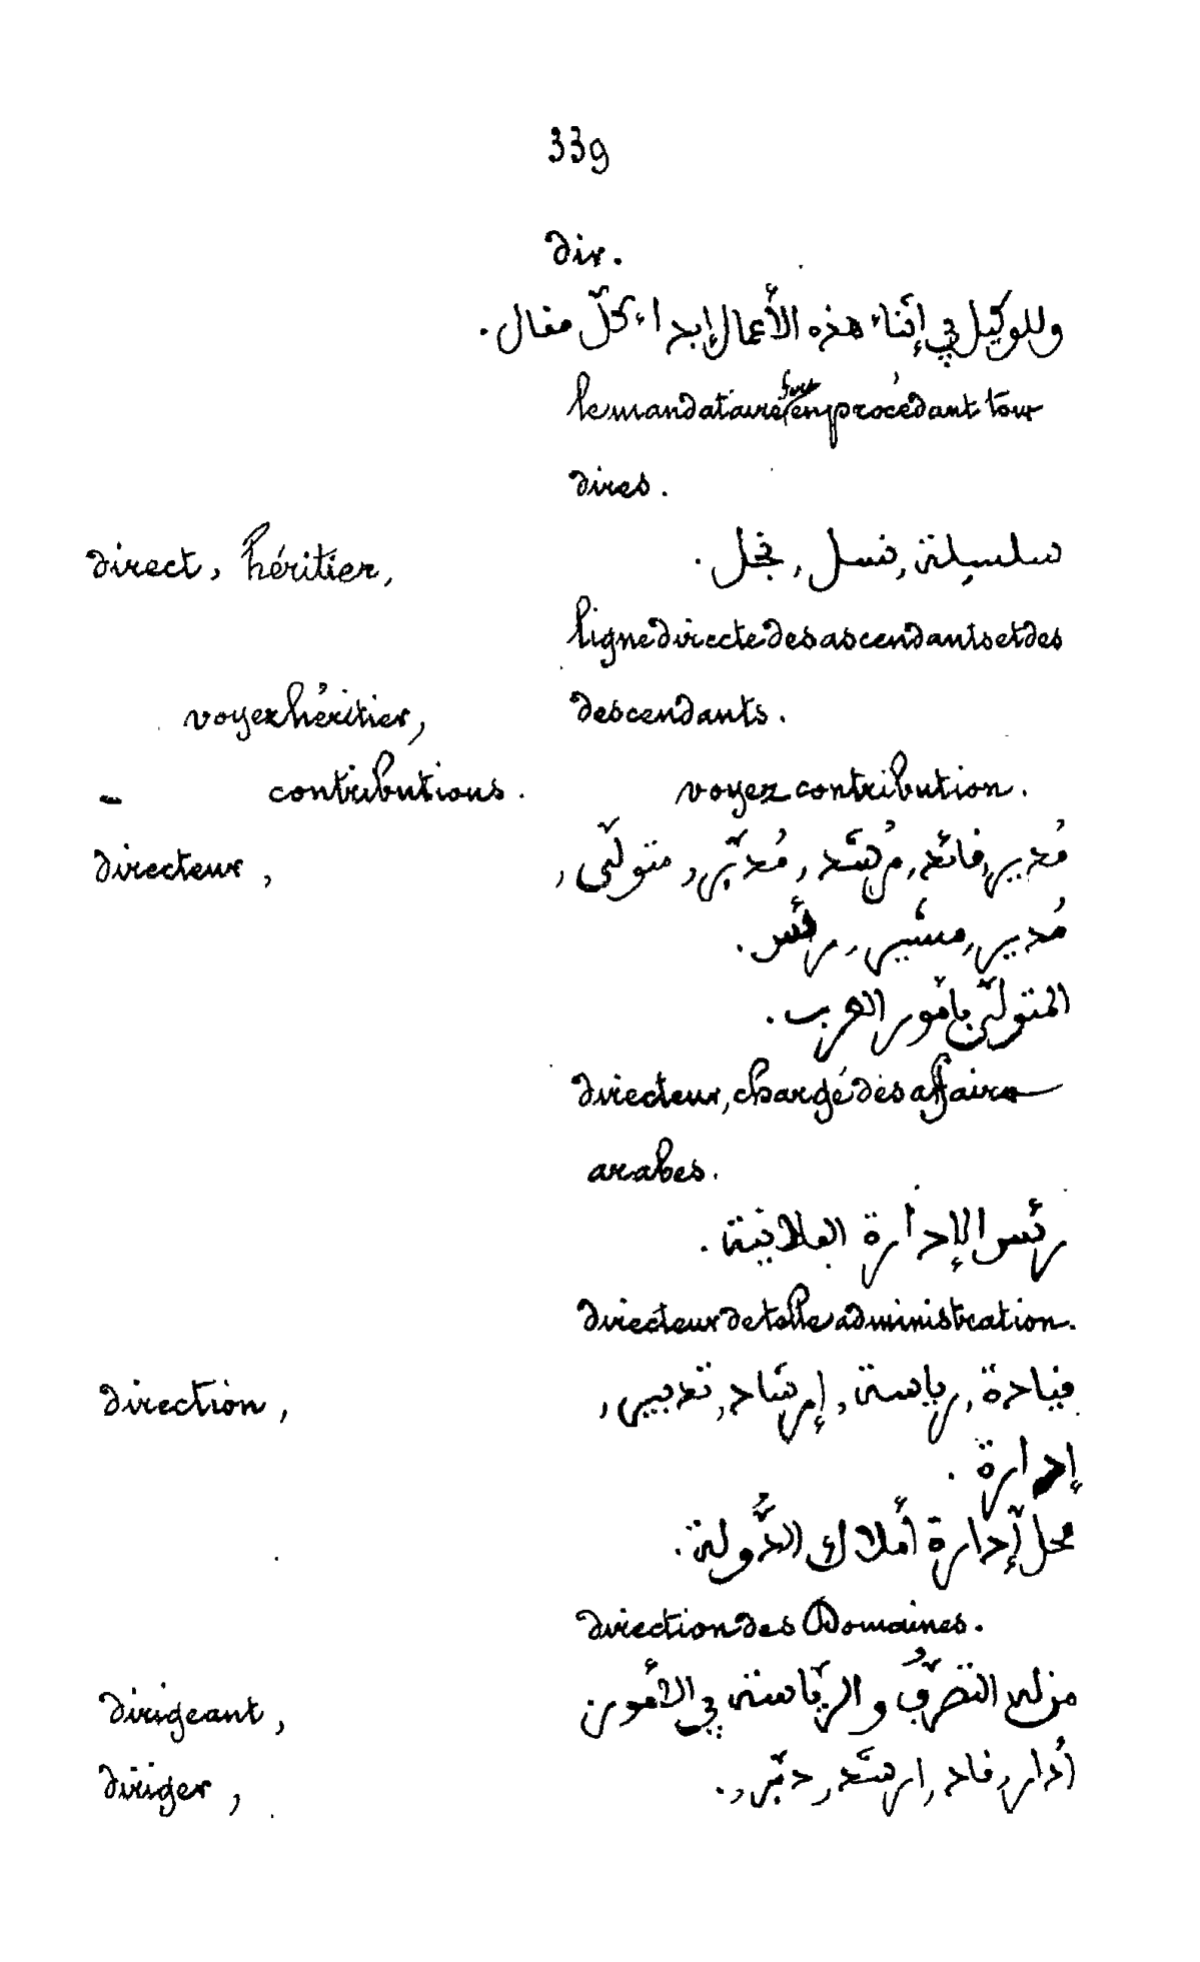 339
dir.
وللوكيل في إثناء هذه الأعمال إبداء كلّ مقال.
le mandataire fera en procédant tour
dires.
direct, héritier, سلسلة, نسل, نجل.
ligne directe des ascendants et des
voyez héritier, descendants.
- contributions. voyez contribution.
directeur, مُدير, قائد, مُرشد, مُدبّر, متولّى,
مُدير, مشير, رئس.
المتولّى بأمور العرب.
directeur, chargé des affaires
arabes.
رئس الإدارة الفلانية.
directeur de telle administration.
direction, قيادة, رياسة, إرشاد, تدبير,
إدارة.
محلّ إدارة أملاك الدّولة.
direction des Domaines.
dirigeant, من له التصرّف والريّاسة في الأمور.
diriger, أدار, قاد, ارشد, دبّر.